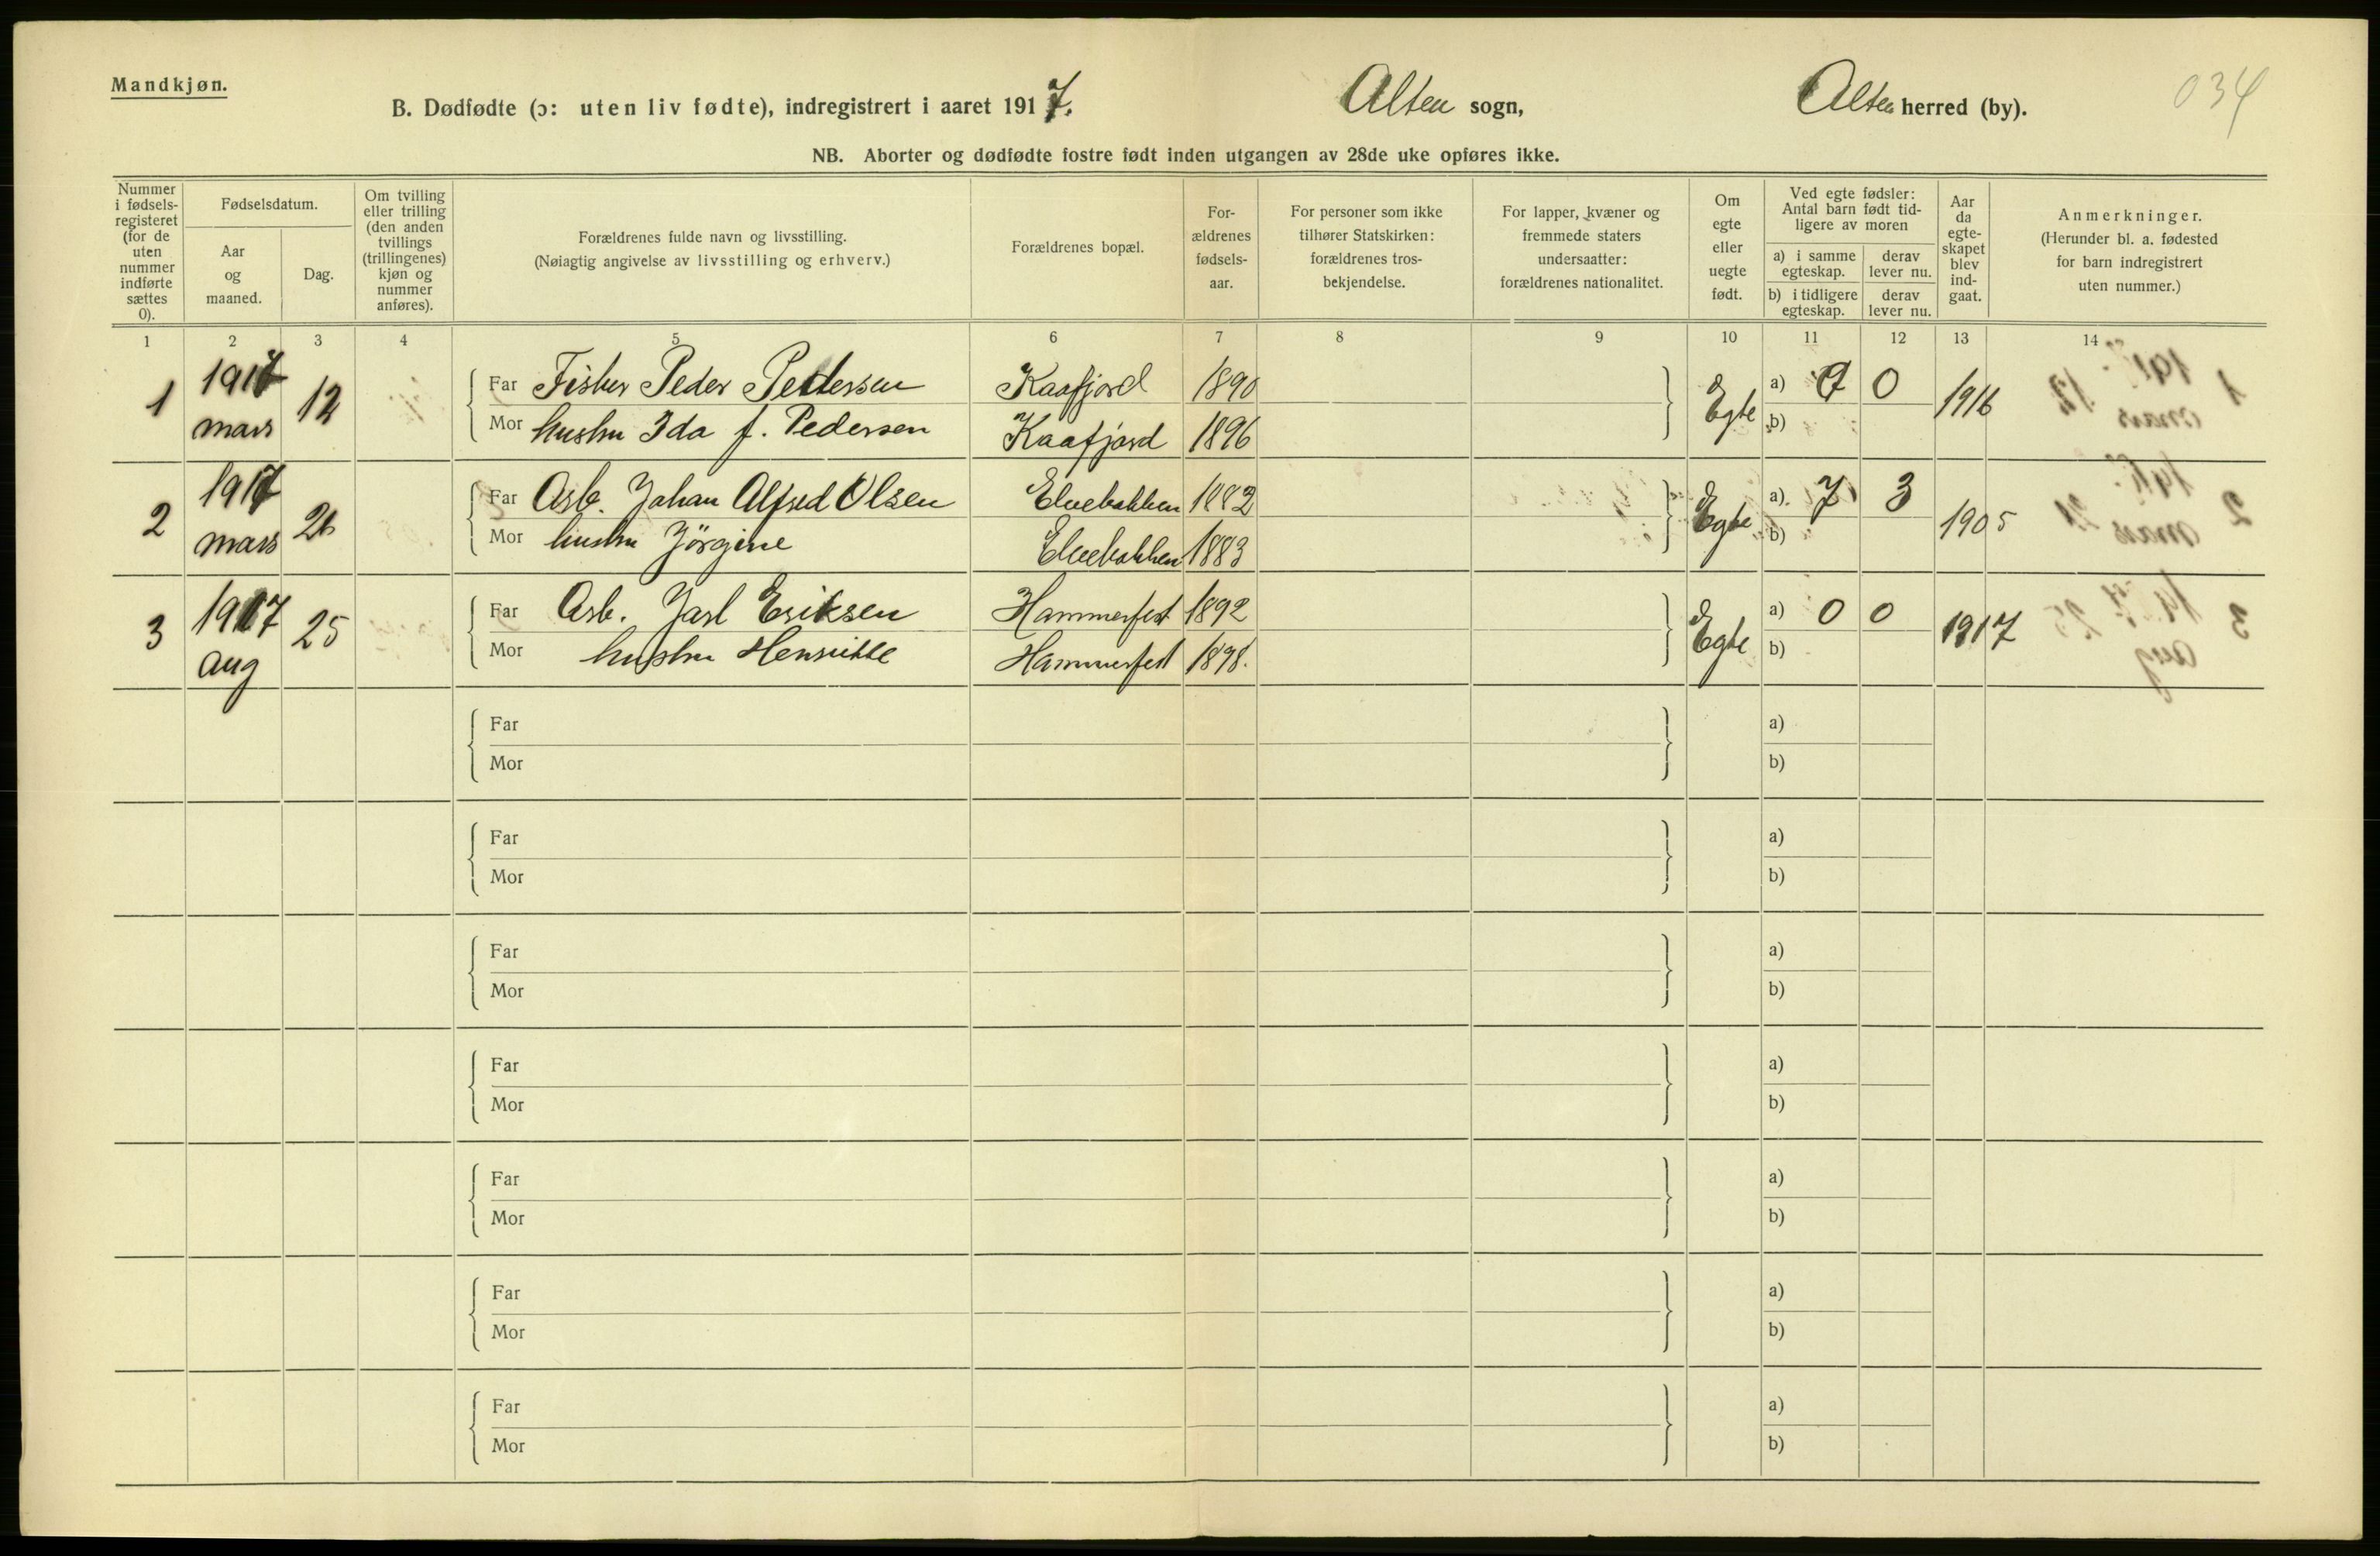 Mandkjøn.
B. Dødfødte (ɔ: uten liv fødte), indregistrert i aaret 1917.
Alten sogn,
Alten herred (by).
034
NB. Aborter og dødfødte fostre født inden utgangen av 28de uke opføres ikke.
Nummer
i fødsels-
registeret
(for de
uten
nummer
indførte
sættes
0).
Fødselsdatum.
Aar
og
maaned.
Dag.
Om tvilling
eller trilling
(den anden
tvillings
(trillingenes)
kjøn og
nummer
anføres).
Forældrenes fulde navn og livsstilling.
(Nøiagtig angivelse av livsstilling og erhverv.)
Forældrenes bopæl.
For-
ældrenes
fødsels-
aar.
For personer som ikke
tilhører Statskirken:
forældrenes tros-
bekjendelse.
For lapper, kvæner og
fremmede staters
undersaatter:
forældrenes nationalitet.
Om
egte
eller
uegte
født.
Ved egte fødsler:
Antal barn født tid-
ligere av moren
a) i samme
egteskap.
derav
lever nu.
b) i tidligere
egteskap.
derav
lever nu.
Aar
da
egte-
skapet
blev
ind-
gaat.
Anmerkninger.
(Herunder bl. a. fødested
for barn indregistrert
uten nummer.)
1 2 3 4 5 6 7 8 9 10 11 12 13 14
1 1917 mars 12
Far Fisker Peder Pedersen Kaafjord 1890
Mor hustru Ida f. Pedersen Kaafjord 1896
Egte a) 0 0 1916
b)
2 1917 mars
Far Arb. Johan Alfred Olsen Elvebakken 1882
Mor hustru Jörgine Elvebakken 1883
Egte a) 7 3 1905
b)
3 1917 aug 25
Far Arb. Jarl Eriksen Hammerfest 1892
Mor hustru Henrikke Hammerfest 1898.
Egte a) 0 0 1917
b)
Far a)
Mor b)
Far a)
Mor b)
Far a)
Mor b)
Far a)
Mor b)
Far a)
Mor b)
Far a)
Mor b)
Far a)
Mor b)